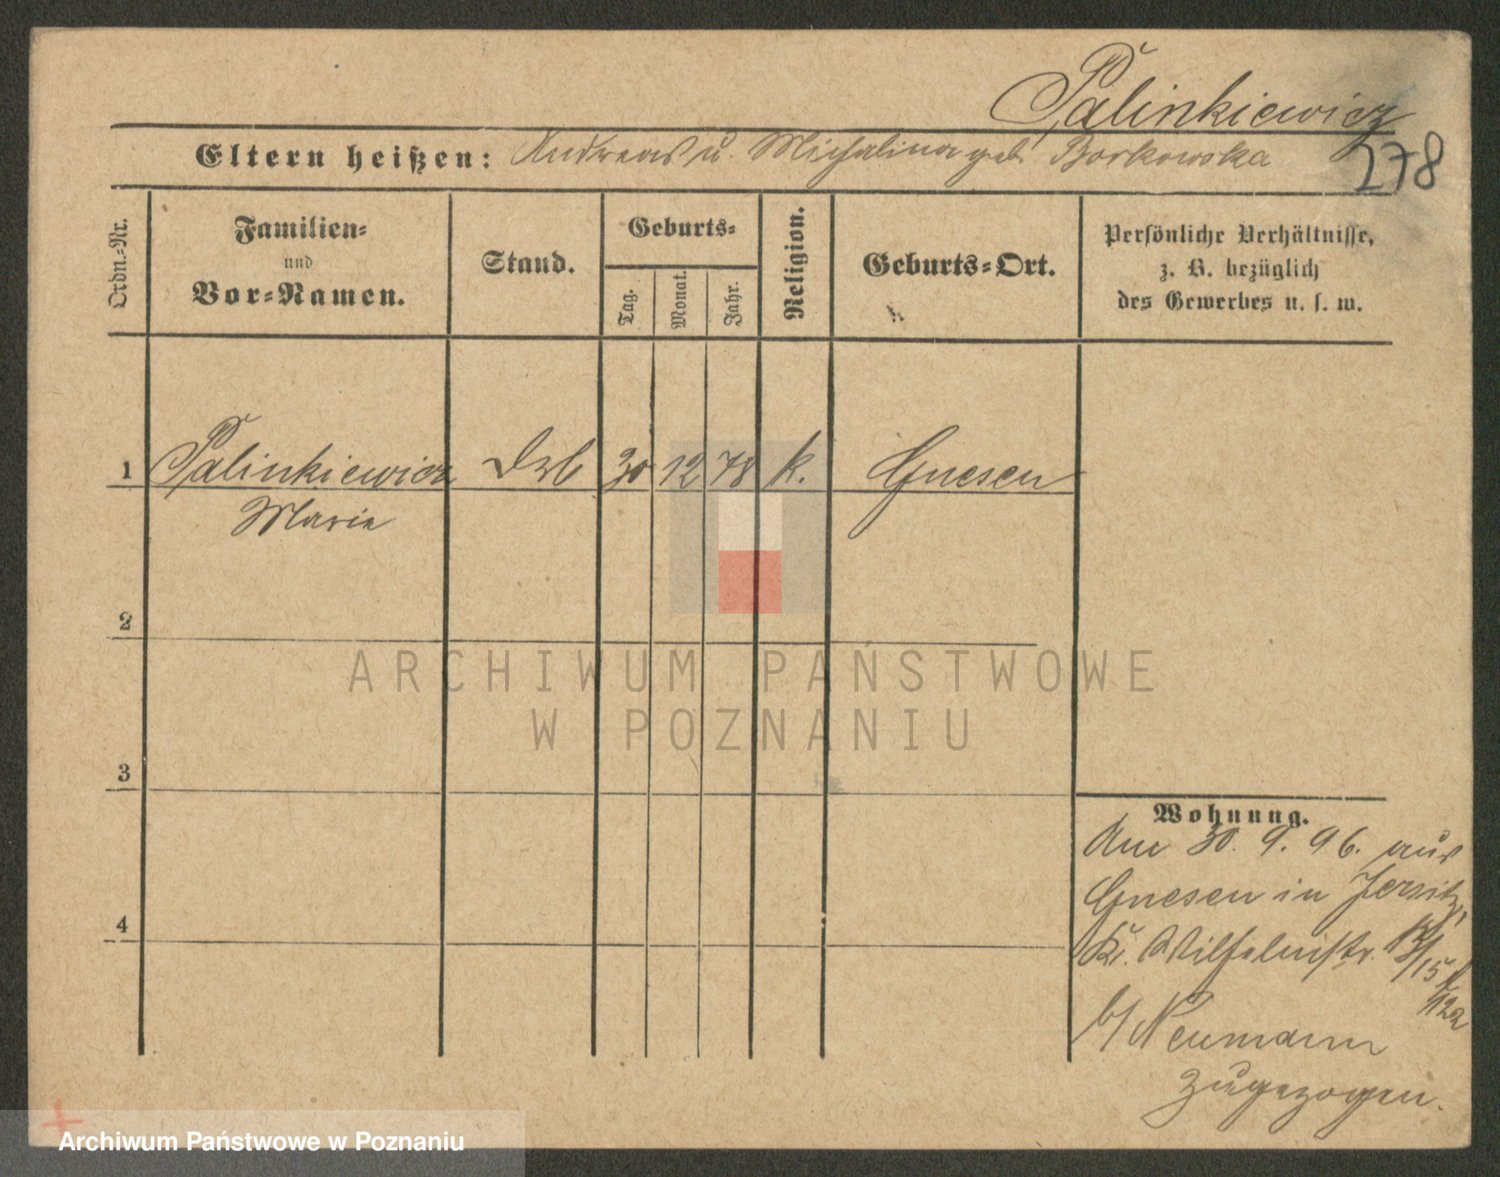 Palinkiewicz
278
Eltern heißen: Andreas u. Michalina geb. Borkowska
Ordn.-Nr.
Familien-
und
Vor-Namen.
Stand.
Geburts-
Tag.
Monat.
Jahr.
Religion.
Geburts-Ort.
Persönliche Verhältnisse,
z. B. bezüglich
des Gewerbes u. s. w.
1 Palinkiewicz 30 12 78 k. Gnesen
Marie
2
3
4
Wohnung.
Am 30. 9. 96. aus
Gnesen in Jersitz,
Kr. Wilhelmstr. 15
12a
b/ Neumann
zugezogen.
ARCHIWUM PAŃSTWOWE
W POZNANIU
Archiwum Państwowe w Poznaniu